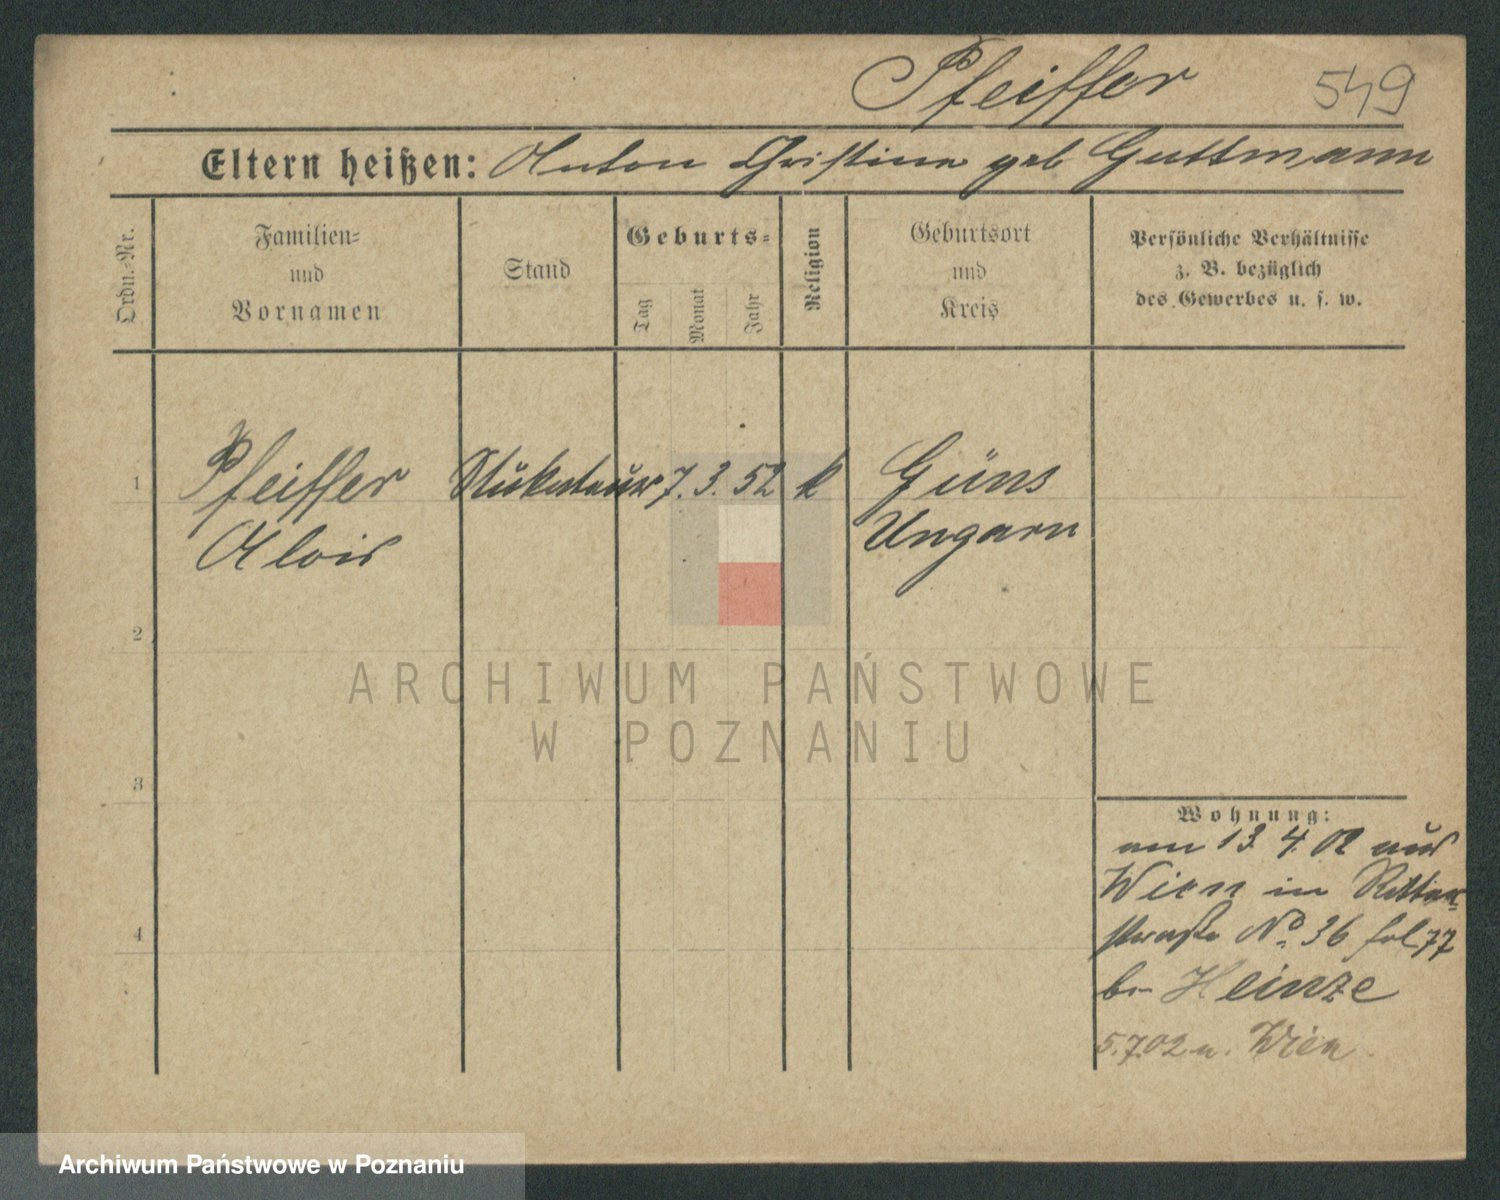 Pfeiffer 549
Eltern heißen: Anton Christina geb Guttmann
Ordn.=Nr.
Familien=
und
Vornamen
Stand
Geburts=
Tag
Monat
Jahr
Religion
Geburtsort
und
Kreis
Persönliche Verhältnisse
z. B. bezüglich
des Gewerbes u. s. w.
1
Pfeiffer Stukateur 7. 3. 52 k Güns
Alois Ungarn
2
3
4
ARCHIWUM PAŃSTWOWE
W POZNANIU
Wohnung:
am 13. 4. 02 aus
Wien in Ritter-
straße No. 36 fol. 77
bei Heinze
5.7.02 n. Wien
Archiwum Państwowe w Poznaniu